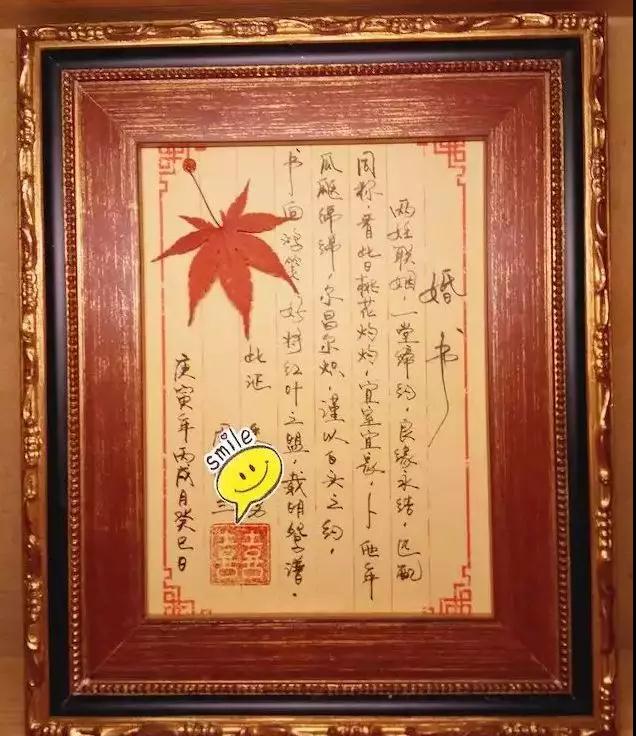 婚书
两姓联姻，一堂缔约，良缘永结，匹配
同称。看此日桃花灼灼，宜室宜家，卜他年
瓜瓞绵绵，尔昌尔炽。谨以白头之约，
书向鸿笺，好将红叶之盟，载明鸳谱。
此证
smile
囍
庚寅年丙戌月癸巳日